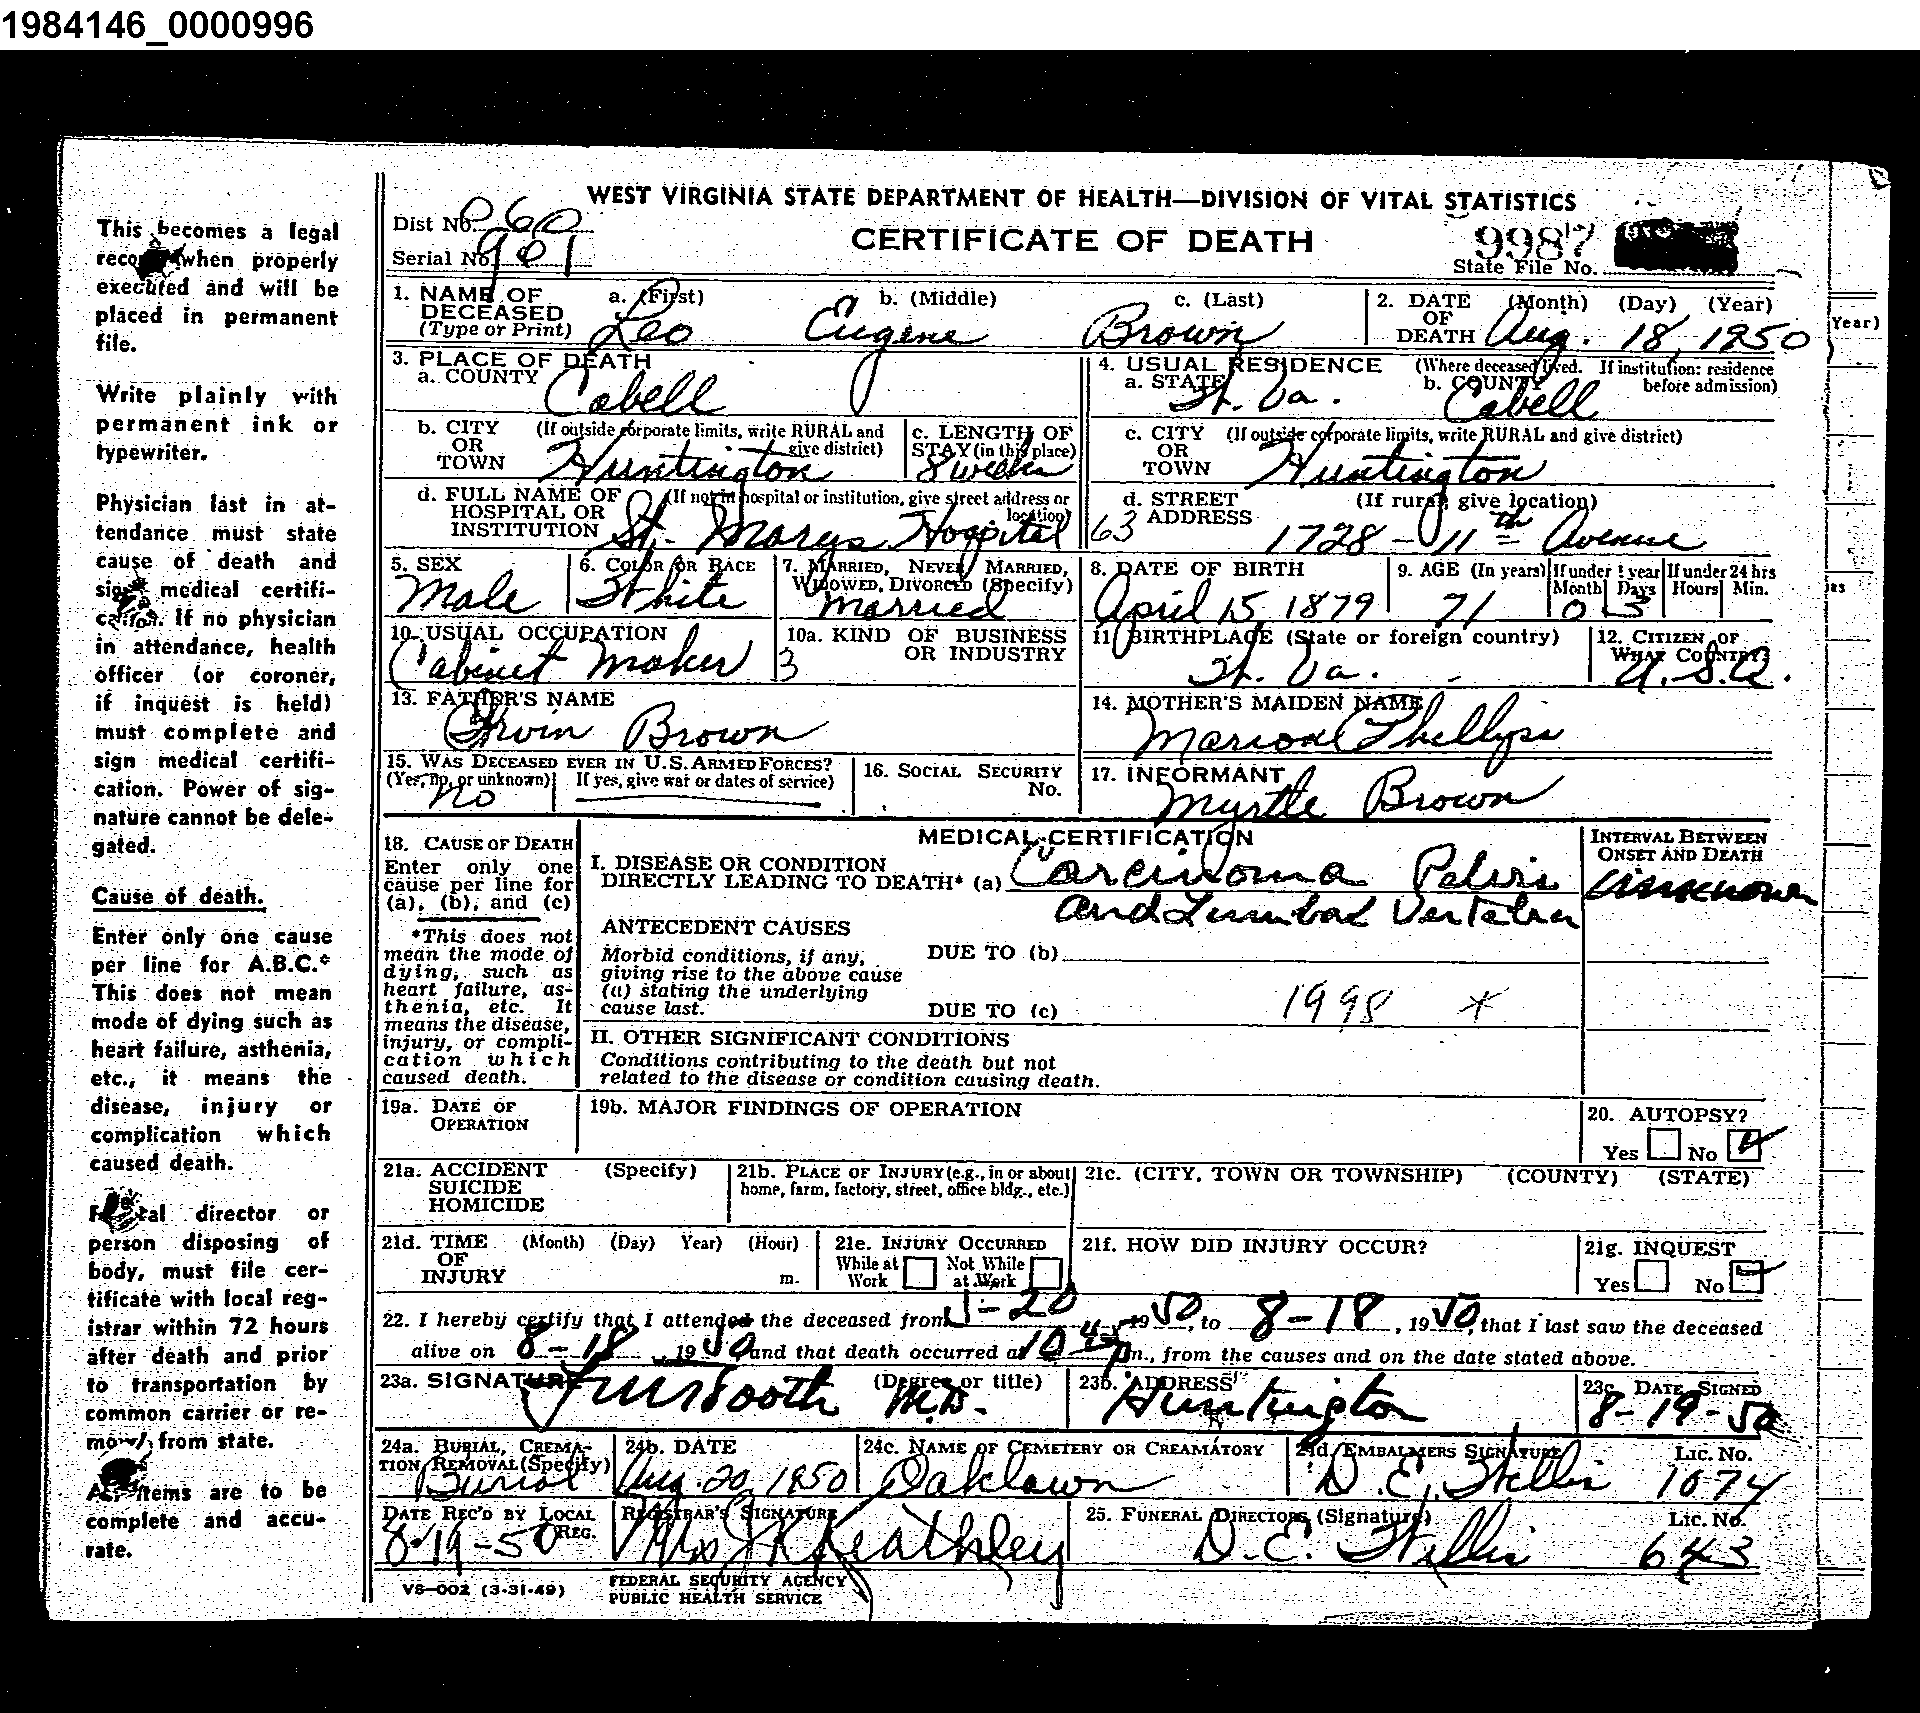 1984146_0000996
WEST VIRGINIA STATE DEPARTMENT OF HEALTH—DIVISION OF VITAL STATISTICS
Dist No. 060
CERTIFICATE OF DEATH
9987
Serial No. 901
State File No.
This becomes a legal
record when properly
executed and will be
placed in permanent
file.
Write plainly with
permanent ink or
typewriter.
Physician last in at-
tendance must state
cause of death and
sign medical certifi-
cation. If no physician
in attendance, health
officer (or coroner,
if inquest is held)
must complete and
sign medical certifi-
cation. Power of sig-
nature cannot be dele-
gated.
Cause of death.
Enter only one cause
per line for A.B.C.*
This does not mean
mode of dying such as
heart failure, asthenia,
etc., it means the
disease, injury or
complication which
caused death.
Funeral director or
person disposing of
body, must file cer-
tificate with local reg-
istrar within 72 hours
after death and prior
to transportation by
common carrier or re-
moval from state.
All items are to be
complete and accu-
rate.
1. NAME OF DECEASED (Type or Print) a. (First) b. (Middle) c. (Last)
Leo Eugene Brown
2. DATE OF DEATH (Month) (Day) (Year)
Aug. 18, 1950
Year)
3. PLACE OF DEATH
a. COUNTY Cabell
4. USUAL RESIDENCE (Where deceased lived. If institution: residence before admission)
a. STATE W. Va. b. COUNTY Cabell
b. CITY OR TOWN (If outside corporate limits, write RURAL and give district)
Huntington
c. LENGTH OF STAY (in this place)
8 weeks
c. CITY OR TOWN (If outside corporate limits, write RURAL and give district)
Huntington
d. FULL NAME OF HOSPITAL OR INSTITUTION (If not in hospital or institution, give street address or location)
St. Marys Hospital
d. STREET ADDRESS (If rural, give location)
63 1728 - 11th Avenue
5. SEX Male
6. COLOR OR RACE White
7. MARRIED, NEVER MARRIED, WIDOWED, DIVORCED (Specify)
Married
8. DATE OF BIRTH
April 15 1879
9. AGE (In years) 71
If under 1 year Month Days 0 3
If under 24 hrs Hours Min.
10. USUAL OCCUPATION
Cabinet Maker
10a. KIND OF BUSINESS OR INDUSTRY
3
11. BIRTHPLACE (State or foreign country)
W. Va.
12. CITIZEN OF WHAT COUNTRY?
U.S.A.
13. FATHER'S NAME
Brown
14. MOTHER'S MAIDEN NAME
Marion Phellips
15. WAS DECEASED EVER IN U.S. ARMED FORCES?
(Yes, no, or unknown) If yes, give war or dates of service)
no
16. SOCIAL SECURITY No.
17. INFORMANT
Myrtle Brown
18. CAUSE OF DEATH
Enter only one
cause per line for
(a), (b), and (c)
*This does not
mean the mode of
dying, such as
heart failure, as-
thenia, etc. It
means the disease,
injury, or compli-
cation which
caused death.
MEDICAL CERTIFICATION
INTERVAL BETWEEN ONSET AND DEATH
I. DISEASE OR CONDITION
DIRECTLY LEADING TO DEATH* (a) Carcinoma Pelvis
and Lumbar Vertebra
unknown
ANTECEDENT CAUSES
Morbid conditions, if any,
giving rise to the above cause
(a) stating the underlying
cause last.
DUE TO (b)
DUE TO (c)
1998 *
II. OTHER SIGNIFICANT CONDITIONS
Conditions contributing to the death but not
related to the disease or condition causing death.
19a. DATE OF OPERATION
19b. MAJOR FINDINGS OF OPERATION
20. AUTOPSY?
Yes No
21a. ACCIDENT SUICIDE HOMICIDE (Specify)
21b. PLACE OF INJURY (e.g., in or about home, farm, factory, street, office bldg., etc.)
21c. (CITY, TOWN OR TOWNSHIP) (COUNTY) (STATE)
21d. TIME OF INJURY (Month) (Day) Year) (Hour) m.
21e. INJURY OCCURRED
While at Work Not While at Work
21f. HOW DID INJURY OCCUR?
21g. INQUEST
Yes No
22. I hereby certify that I attended the deceased from 1-20, 1950, to 8-18, 1950, that I last saw the deceased
alive on 8-18, 1950 and that death occurred at 10 45 pm., from the causes and on the date stated above.
23a. SIGNATURE (Degree or title)
M.D.
23b. ADDRESS
Huntington
23c. DATE SIGNED
8-19-50
24a. BURIAL, CREMATION REMOVAL (Specify)
Burial
24b. DATE
Aug. 20, 1950
24c. NAME OF CEMETERY OR CREAMATORY
Oaklawn
24d. EMBALMERS SIGNATURE Lic. No.
D. E. 1074
DATE REC'D BY LOCAL REG.
8-19-50
REGISTRAR'S SIGNATURE
Mrs J K Keathley
25. FUNERAL DIRECTORS (Signature) Lic. No.
D. E. 643
VS-002 (3-31-49)
FEDERAL SECURITY AGENCY
PUBLIC HEALTH SERVICE